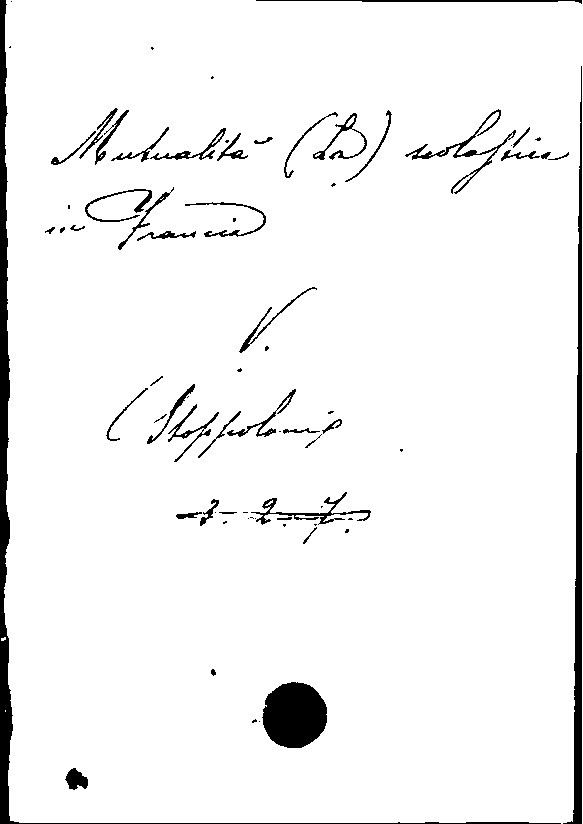 Mutualità (La) scolastica
in Francia
V.
(Stoppoloni
3. 2. 7.